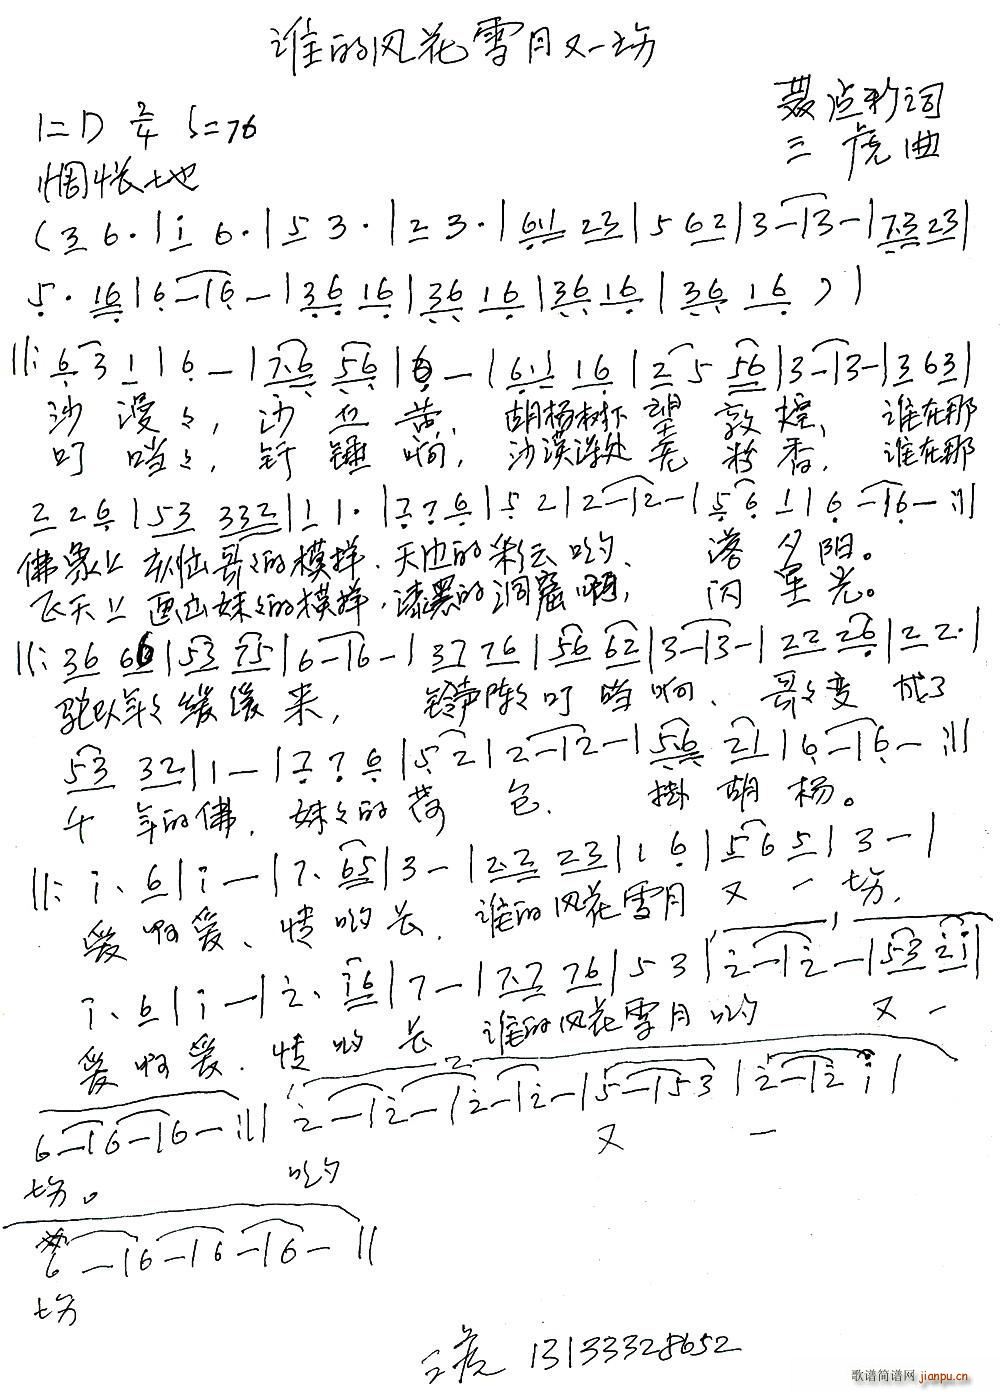 谁的风花雪月又一场
聂应彩词
三虎曲
1=D 2/4 ♩=76
惆怅地
(3 6·|i 6·|5 3·|2 3·|6·1 23|5 62|3-|3-|7·3 23|
5·16|6-|6-|36 16|36 16|36 16|36 16)|
||:6 3 1|6-|7·6 56|6-|6·1 16|2 5 56|3-|3-|3 63|
沙漫々,沙也苦,胡杨树下望敦煌,谁在那
叮当々,钎锤响,沙漠深处亮粉香,谁在那
2 2 6|53 332|1 1·|7 7 6|5 2|2-|2-|5 6 1|6-|6-:||
佛象上刻出哥々的模样,天边的彩云哟,落夕阳。
飞天上画出妹々的模样,漆黑的洞窟啊,闪星光。
||:36 66|53 75|6-|6-|37 76|56 62|3-|3-|22 26|2 2·|
驼队年々缓缓来,铃声阵々叮当响,哥々变成了
53 32|1-|7 7 6|5 2|2-|2-|5·6 21|6-|6-:||
千年的佛,妹々的荷包,掛胡杨。
||:i·6|i-|7·65|3-|2·2 23|1 6|5 6 5|3-|
爱啊爱、情哟长,谁的风花雪月又一场,
i·6|i-|2·i6|7-|7·7 76|5 3|2-|2-|53 2i|
爱啊爱,情哟长 谁的风花雪月哟 又一
6-|6-|6-:|| 2-|2-|2-|2-|5-|53|2-|2 i|
场。 哟 又 一
6-|6-|6-|6-||
场
三虎 13133328652
歌谱简谱网 jianpu.cn